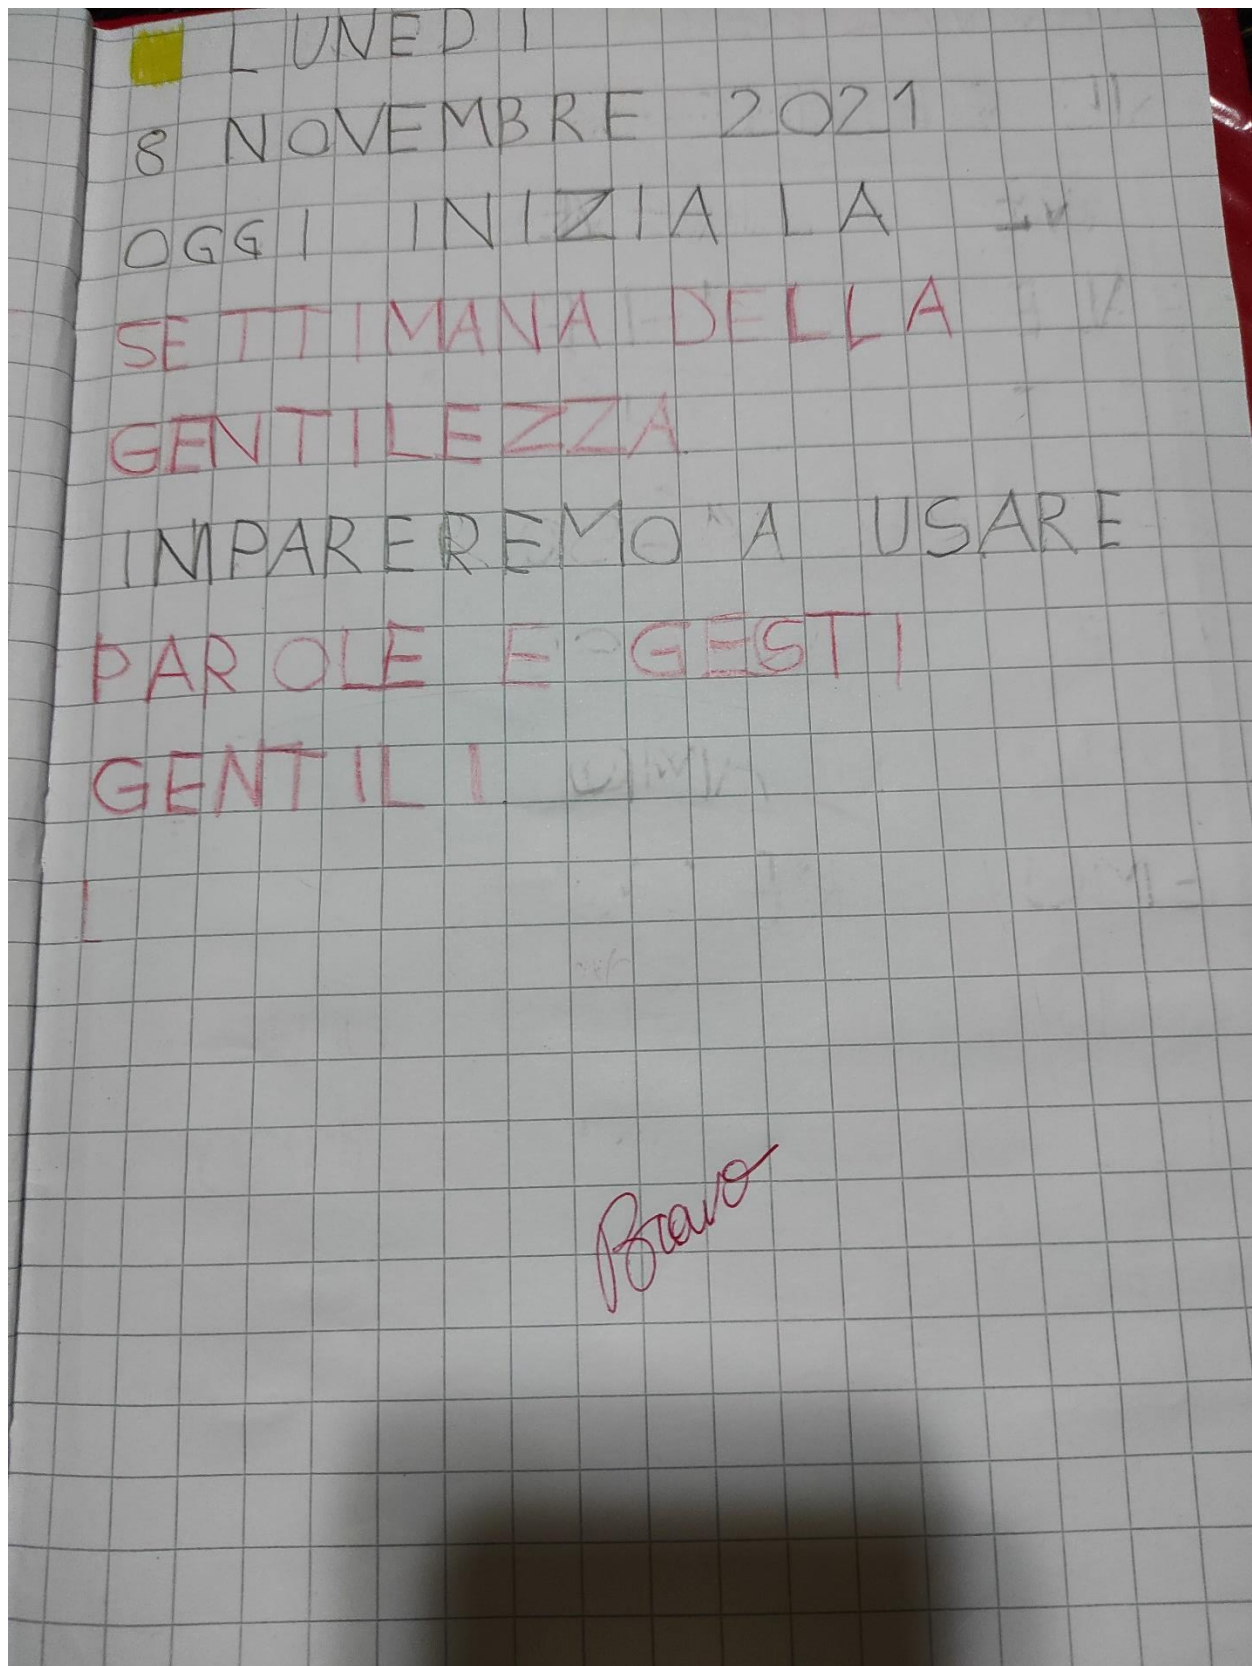 LUNEDI
8 NOVEMBRE 2021
OGGI INIZIA LA
SETTIMANA DELLA
GENTILEZZA
IMPAREREMO A USARE
PAROLE E GESTI
GENTILI
L
Bravo